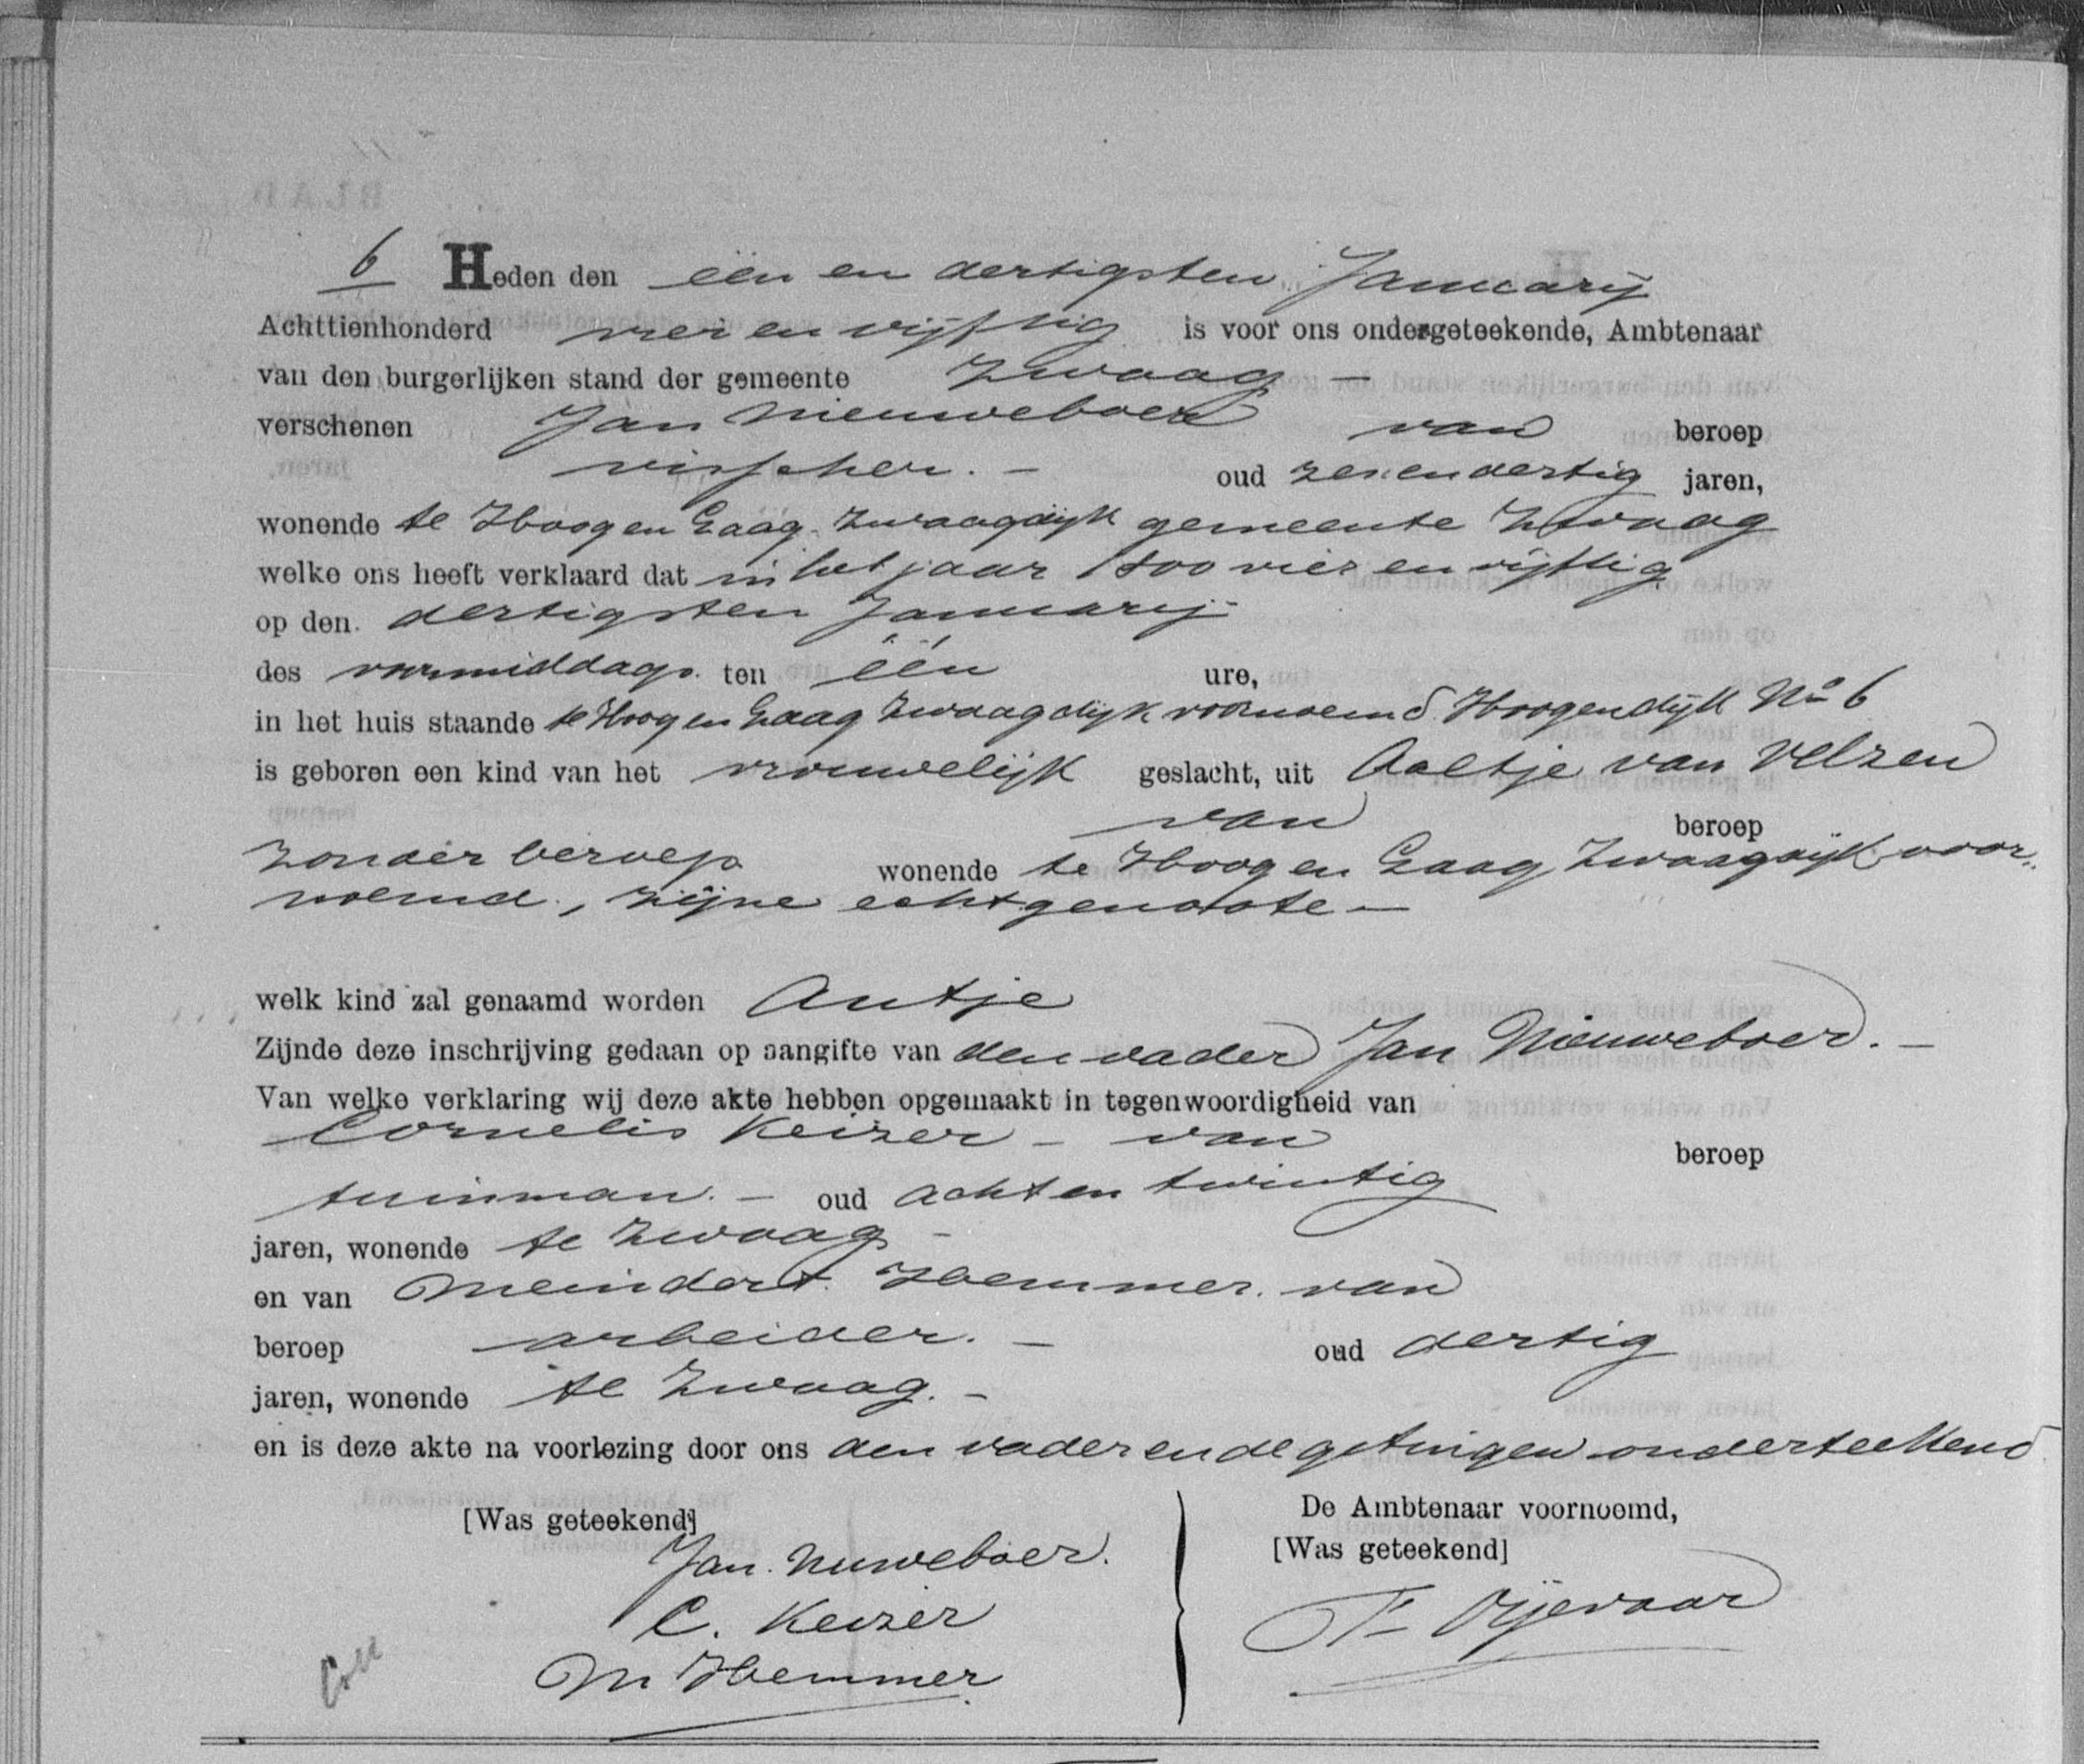 6 Heden den één en dertigsten Januarij
Achttienhonderd vier en vijftig is voor ons ondergeteekende, Ambtenaar
van den burgerlijken stand der gemeente Zwaag —
verschenen Jan Nieuweboer van beroep
visscher. — oud zes en dertig jaren,
wonende te Hoog en Laag Zwaagdijk gemeente Zwaag
welke ons heeft verklaard dat in het jaar 1800 vier en vijftig
op den dertigsten Januarij
des voormiddags ten één ure,
in het huis staande te Hoog en Laag Zwaagdijk voornoemd Hoogendijk No 6
is geboren een kind van het vrouwelijk geslacht, uit Aaltje van Velzen
van beroep
zonder beroep wonende te Hoog en Laag Zwaagdijk voor-
noemd, zijne echtgenoote —
welk kind zal genaamd worden Antje
Zijnde deze inschrijving gedaan op aangifte van den vader Jan Nieuweboer. —
Van welke verklaring wij deze akte hebben opgemaakt in tegenwoordigheid van
Cornelis Keizer — van beroep
tuinman. — oud acht en twintig
jaren, wonende te Zwaag —
en van Meindert Hemmer van
beroep arbeider. — oud dertig
jaren, wonende te Zwaag. —
en is deze akte na voorlezing door ons den vader en de getuigen onderteekend
[Was geteekend]
De Ambtenaar voornoemd,
[Was geteekend]
Jan Nuweboer.
C. Keizer
M Hemmer